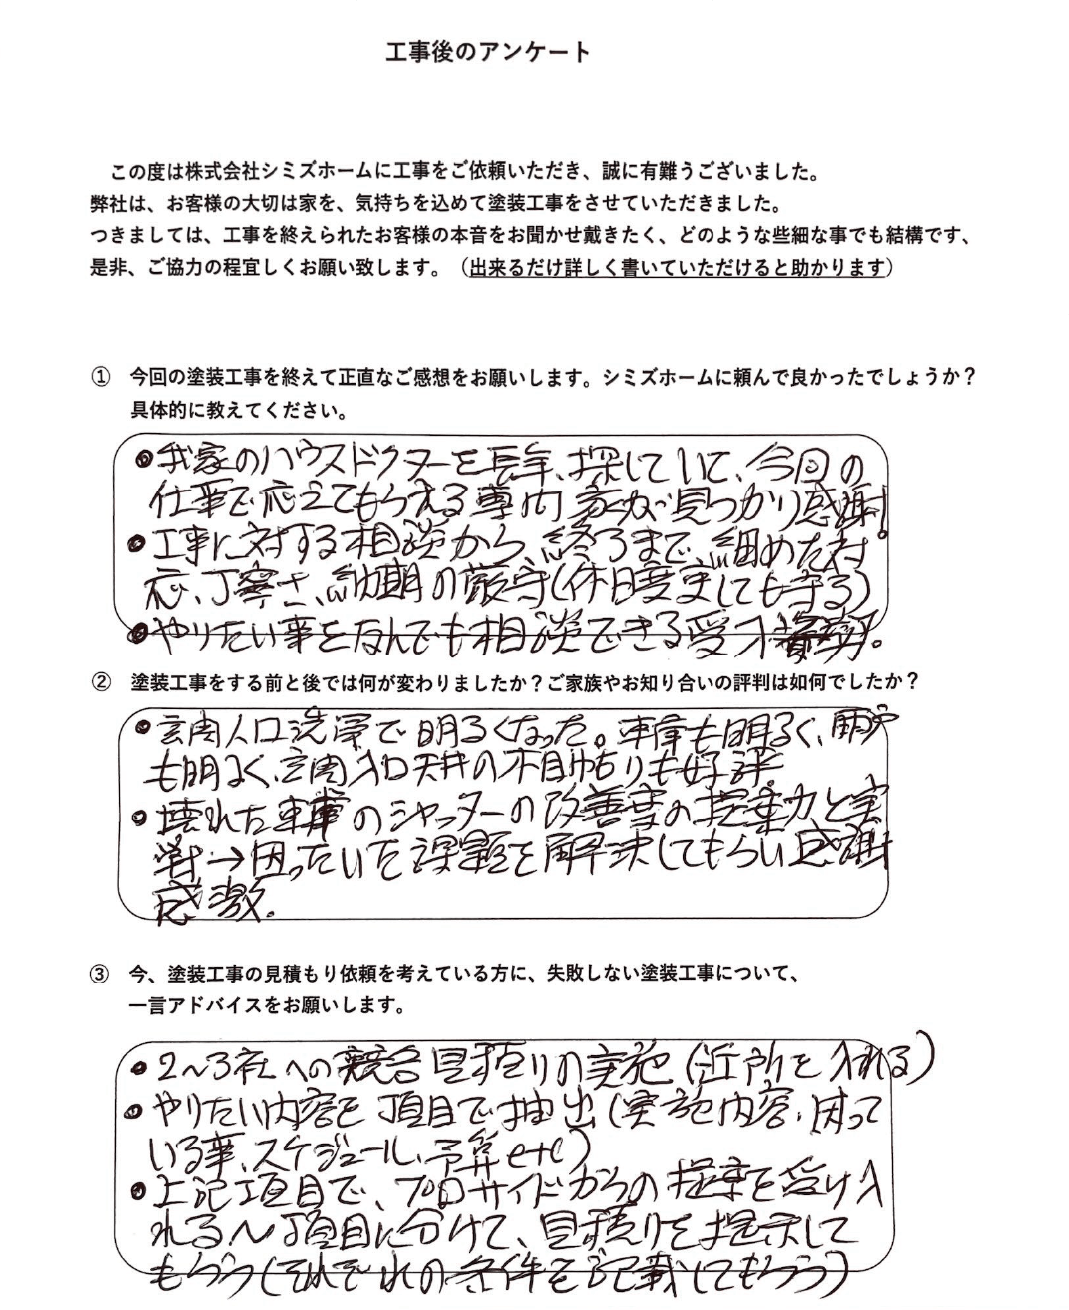 工事後のアンケート
この度は株式会社シミズホームに工事をご依頼いただき、誠に有難うございました。
弊社は、お客様の大切は家を、気持ちを込めて塗装工事をさせていただきました。
つきましては、工事を終えられたお客様の本音をお聞かせ戴きたく、どのような些細な事でも結構です、
是非、ご協力の程宜しくお願い致します。（出来るだけ詳しく書いていただけると助かります）
① 今回の塗装工事を終えて正直なご感想をお願いします。シミズホームに頼んで良かったでしょうか？
具体的に教えてください。
●我家のハウスドクターを長年、探していて、今回の
仕事で応えてもらえる専門家が見つかり感謝!
●工事に対する相談から、終るまで、細めな対
応、丁寧さ、納期の厳守(休日変更しても守る)
●やりたい事をなんでも相談できる受入
② 塗装工事をする前と後では何が変わりましたか？ご家族やお知り合いの評判は如何でしたか？
●玄関入口洗浄で明るくなった。車庫も明るく、雨戸
も明るく、玄関入口天井の木目貼りも好評
●壊れた車庫のシャッターの改善等の提案力と実
→困っていた課題を解決してもらい感謝
感激。
③ 今、塗装工事の見積もり依頼を考えている方に、失敗しない塗装工事について、
一言アドバイスをお願いします。
●2〜3社への競合見積りの実施(近所を入れる)
●やりたい内容を項目で抽出(実施内容、困って
いる事、スケジュール、予算etc)
●上記項目で、プロサイドからの提案を受け入
れる〜項目に分けて、見積りを提示して
もらう(それぞれの条件を記載してもらう)